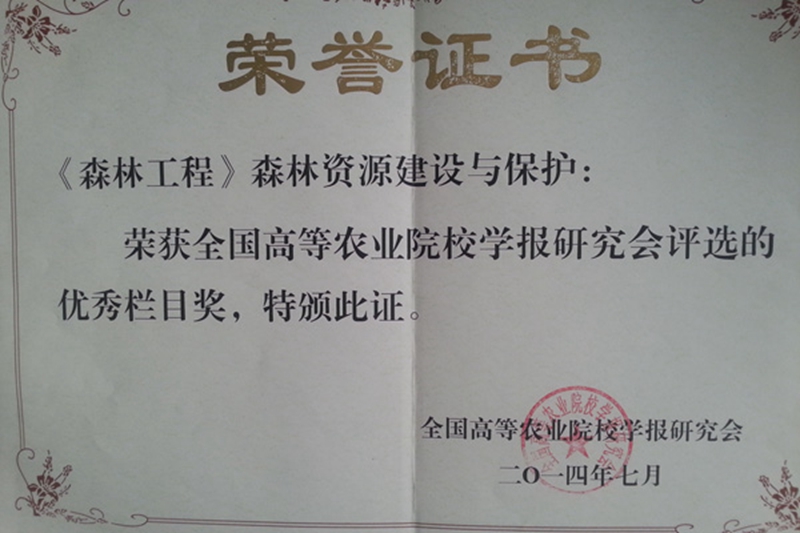 荣誉证书
《森林工程》森林资源建设与保护：
荣获全国高等农业院校学报研究会评选的
优秀栏目奖，特颁此证。
全国高等农业院校学报研究会
二〇一四年七月